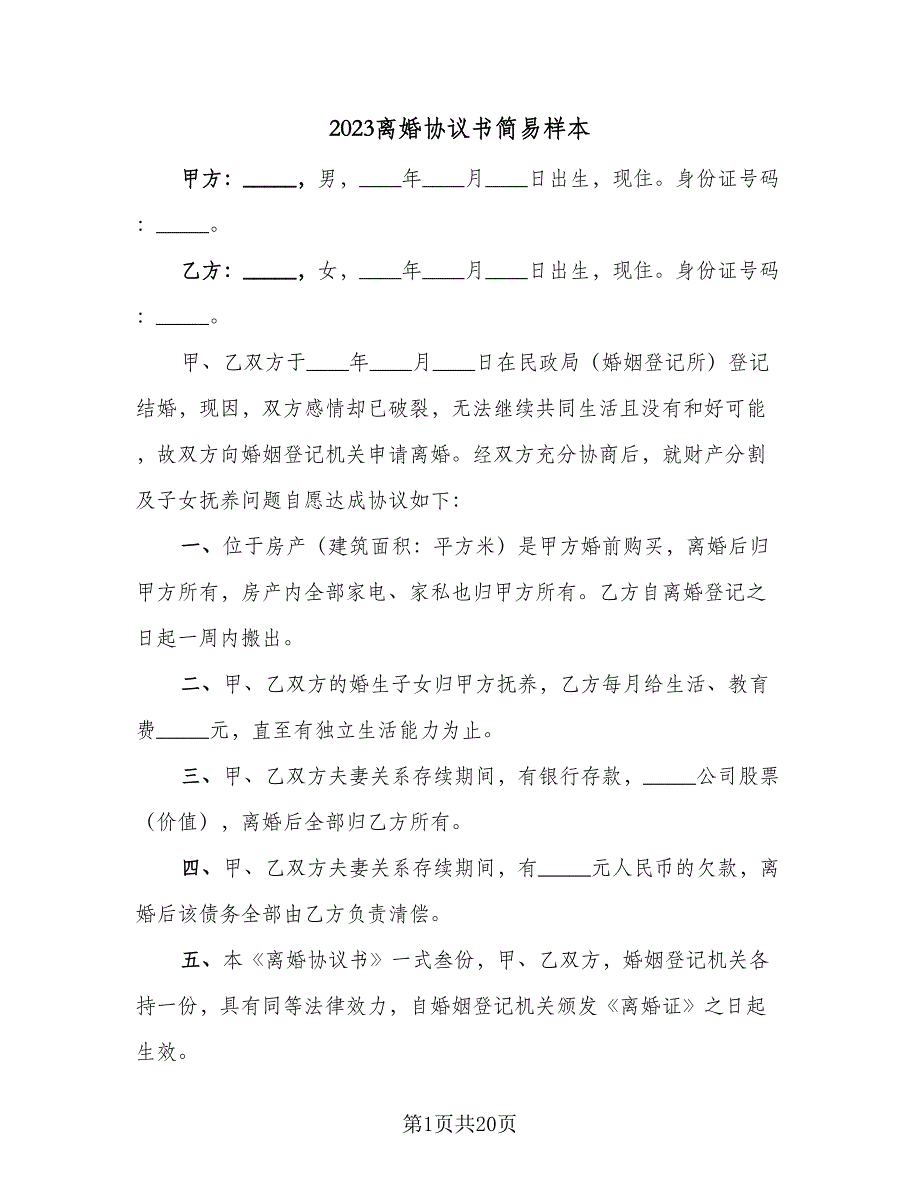 2023离婚协议书简易样本
甲方：_____，男，____年____月____日出生，现住。身份证号码
：_____。
乙方：_____，女，____年____月____日出生，现住。身份证号码
：_____。
甲、乙双方于____年____月____日在民政局（婚姻登记所）登记
结婚，现因，双方感情却已破裂，无法继续共同生活且没有和好可能
，故双方向婚姻登记机关申请离婚。经双方充分协商后，就财产分割
及子女抚养问题自愿达成协议如下：
一、位于房产（建筑面积：平方米）是甲方婚前购买，离婚后归
甲方所有，房产内全部家电、家私也归甲方所有。乙方自离婚登记之
日起一周内搬出。
二、甲、乙双方的婚生子女归甲方抚养，乙方每月给生活、教育
费_____元，直至有独立生活能力为止。
三、甲、乙双方夫妻关系存续期间，有银行存款，_____公司股票
（价值），离婚后全部归乙方所有。
四、甲、乙双方夫妻关系存续期间，有_____元人民币的欠款，离
婚后该债务全部由乙方负责清偿。
五、本《离婚协议书》一式叁份，甲、乙双方，婚姻登记机关各
持一份，具有同等法律效力，自婚姻登记机关颁发《离婚证》之日起
生效。
第1页共20页